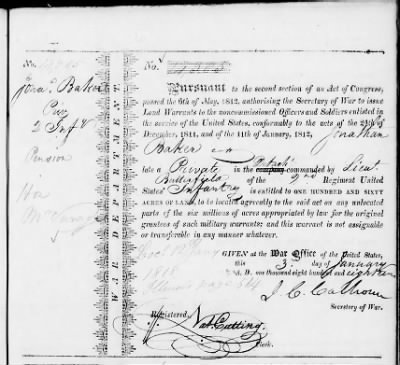 No.
No.
Jona. Baker
PURSUANT to the second section of an Act of Congress,
Pvt
passed the 6th of May, 1812, authorising the Secretary of War to issue
2 Inf
Land Warrants to the noncommissioned Officers and Soldiers enlisted
in the service of the United States, conformably to the acts of the 24th of
December, 1811, and of the 11th of January, 1812, Jonathan
Pension
Baker
late a Private in the Detach't commanded by Lieut.
Butterfield 2nd Regiment United
States' Infantry is entitled to ONE HUNDRED AND SIXTY
ACRES OF LAND, to be located agreeably to the said act on any unlocated
parts of the six millions of acres appropriated by law for the original
grantees of such military warrants; and this warrant is not assignable
or transferable in any manner whatever.
WAR DEPARTMENT
GIVEN at the War Office of the United States,
this 3 day of January
1818
A.D. one thousand eight hundred and eighteen
J. C. Calhoun
Secretary of War.
Registered,
Nat. Cutting,
Clerk.